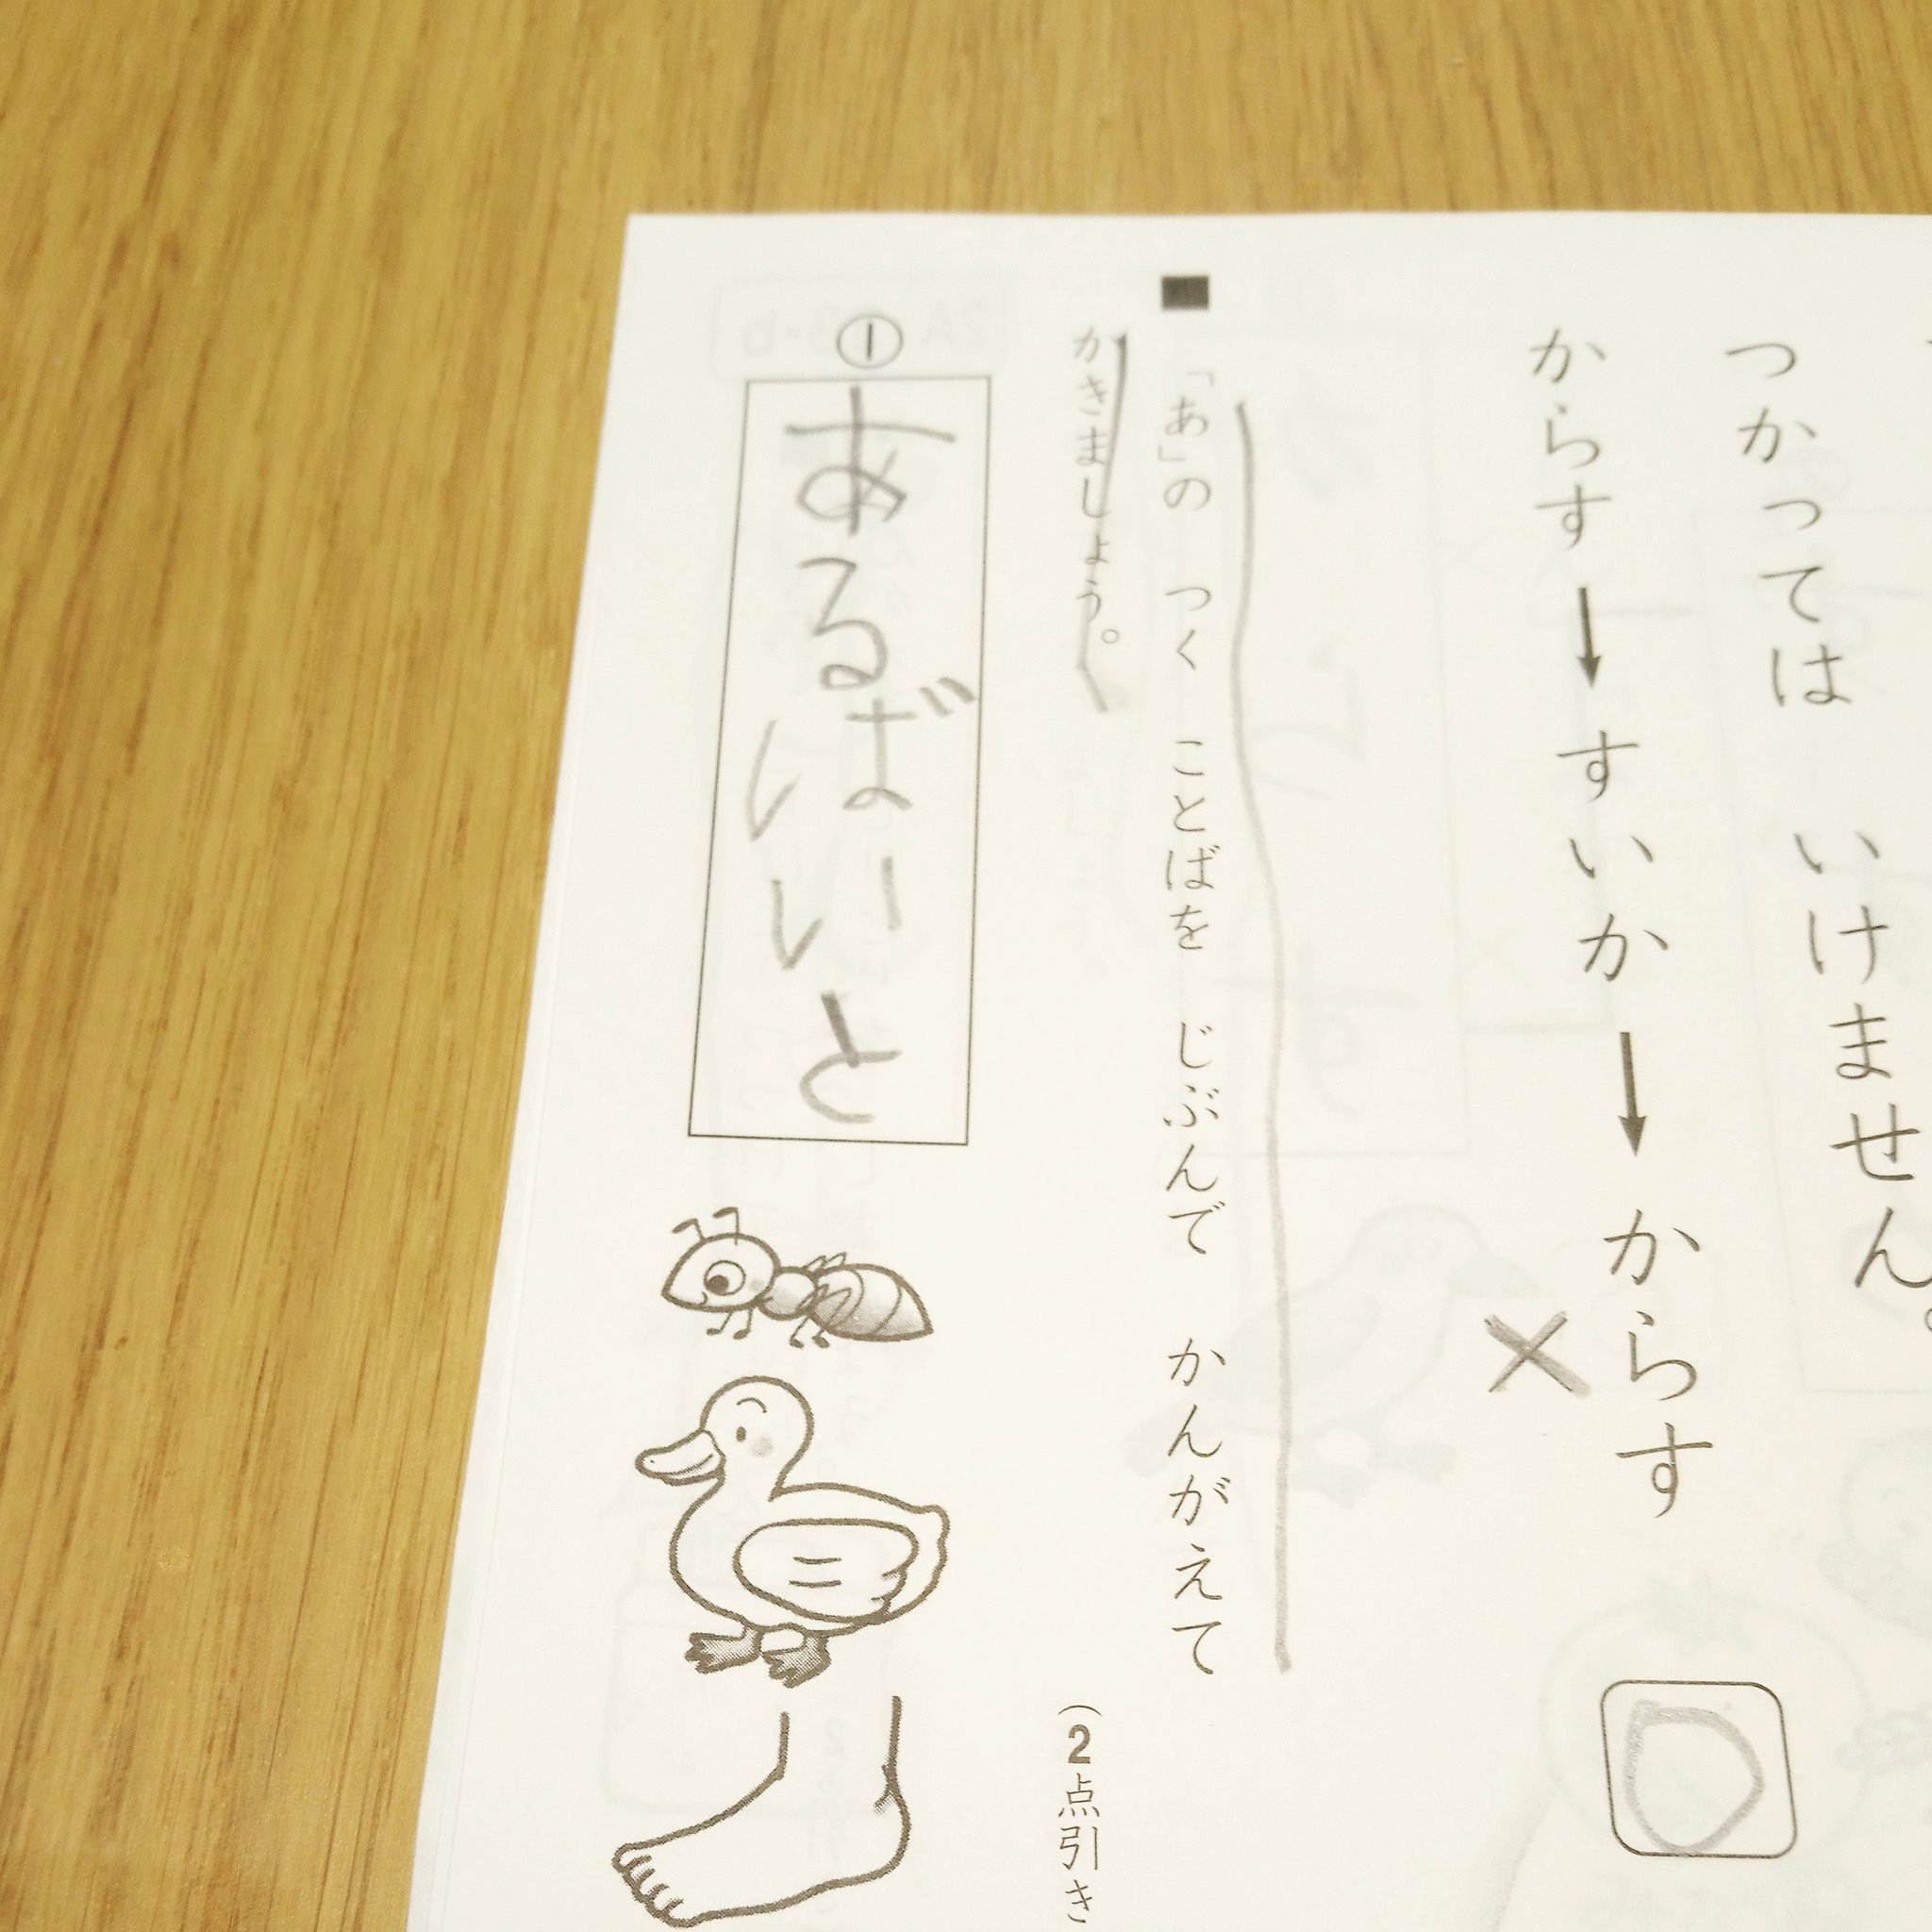 つかっては いけません。
からす→すいか→からす
×
■「あ」の つく ことばを じぶんで かんがえて
かきましょう。
(2点引き
①
あるばいと